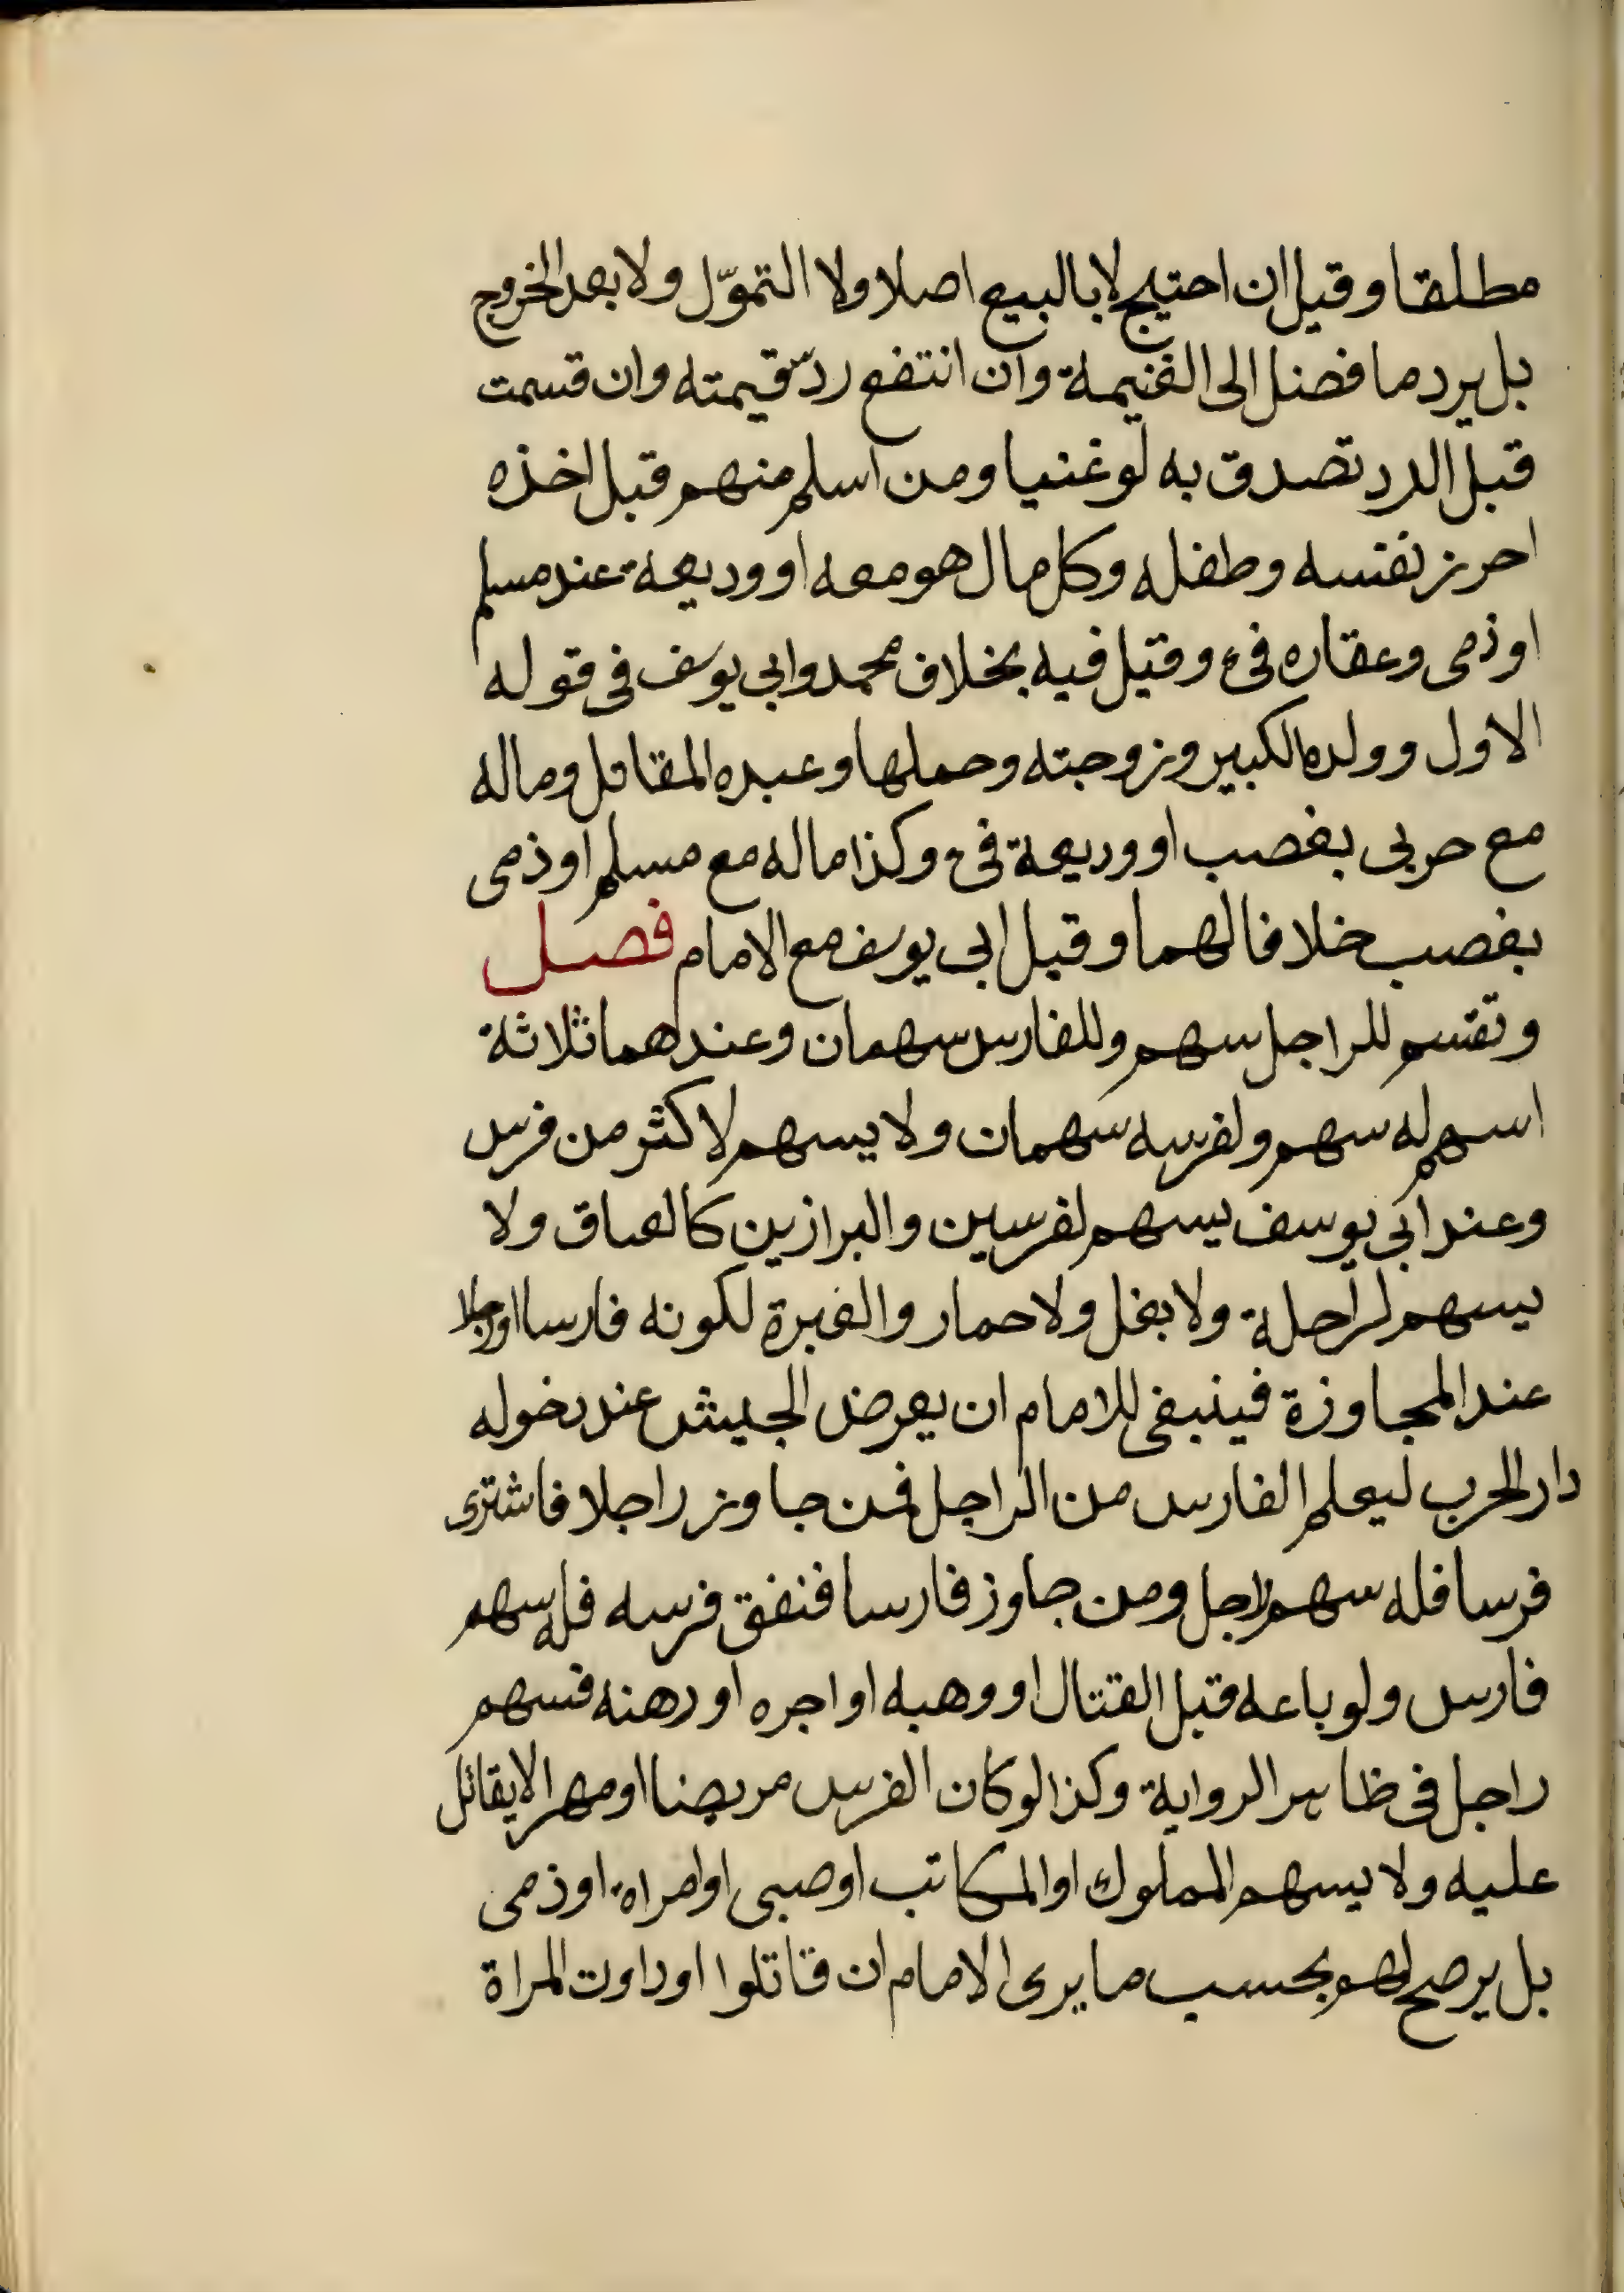 مطلقا وقيل ان احتيج لا بالبيع اصلا ولا التموّل ولا بعد الخروج
بل يرد ما فضل الى الغنيمة وان انتفع ردّ قيمته وان قسمت
قبل الرد تصدق به لو غنيا ومن اسلم منهم قبل اخذه
احرز نفسه وطفله وكل مال هو معه او وديعة عند مسلم
او ذمى وعقاره فئ وقيل فيه بخلاف محمد وابى يوسف فى قوله
الاول وولده الكبير وزوجته وحملها وعبده المقاتل وماله
مع حربى بغصب او وديعة فئ وكذا ماله مع مسلم او ذمى
بغصب خلافا لهما وقيل ابى يوسف مع الامام فصل
وتقسم للراجل سهم وللفارس سهمان وعندهما ثلاثة
اسهم له سهم ولفرسه سهمان ولا يسهم لاكثر من فرس
وعند ابى يوسف يسهم لفرسين والبرازين كالعتاق ولا
يسهم لراحلة ولا بغل ولا حمار والعبرة لكونه فارسا او راجلا
عند المجاوزة فينبغى للامام ان يعرض الجيش عند دخوله
دار الحرب ليعلم الفارس من الراجل فمن جاوز راجلا فاشترى
فرسا فله سهم راجل ومن جاوز فارسا فنفق فرسه فله سهم
فارس ولو باعه قبل القتال او وهبه او اجره او رهنه فسهم
راجل فى ظاهر الرواية وكذا لو كان الفرس مريضا او مهرا لا يقاتل
عليه ولا يسهم المملوك او المكاتب او صبى او امراة او ذمى
بل يرضح لهم بحسب ما يرى الامام ان قاتلوا او داوت المراة